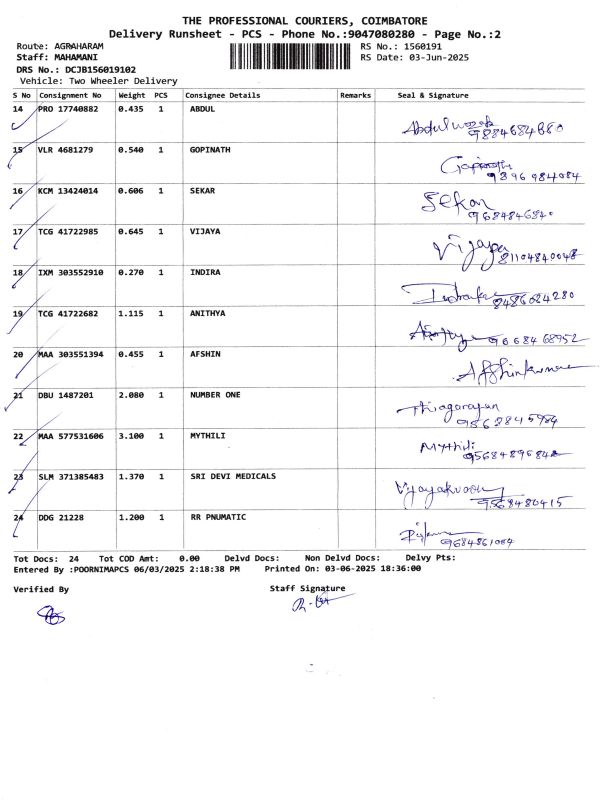 THE PROFESSIONAL COURIERS, COIMBATORE
Delivery Runsheet - PCS - Phone No.:9047080280 - Page No.:2
Route: AGRAHARAM RS No.: 1560191
Staff: MAHAMANI RS Date: 03-Jun-2025
DRS No.: DCJB156019102
Vehicle: Two Wheeler Delivery
S No Consignment No Weight PCS Consignee Details Remarks Seal & Signature
14 PRO 17740882 0.435 1 ABDUL
9884684880
15 VLR 4681279 0.540 1 GOPINATH
9896984084
16 KCM 13424014 0.606 1 SEKAR Sekar
9684846840
17 TCG 41722985 0.645 1 VIJAYA Vijaya
81104840048
18 IXM 303552910 0.270 1 INDIRA
8486084280
19 TCG 41722682 1.115 1 ANITHYA
9668468952
20 MAA 303551394 0.455 1 AFSHIN
21 DBU 1487201 2.080 1 NUMBER ONE Thiagarajan
9562845984
22 MAA 577531606 3.100 1 MYTHILI Mythili
23 SLM 371385483 1.370 1 SRI DEVI MEDICALS
9568480415
24 DDG 21228 1.200 1 RR PNUMATIC
9684861084
Tot Docs: 24 Tot COD Amt: 0.00 Delvd Docs: Non Delvd Docs: Delvy Pts:
Entered By :POORNIMAPCS 06/03/2025 2:18:38 PM Printed On: 03-06-2025 18:36:00
Verified By Staff Signature